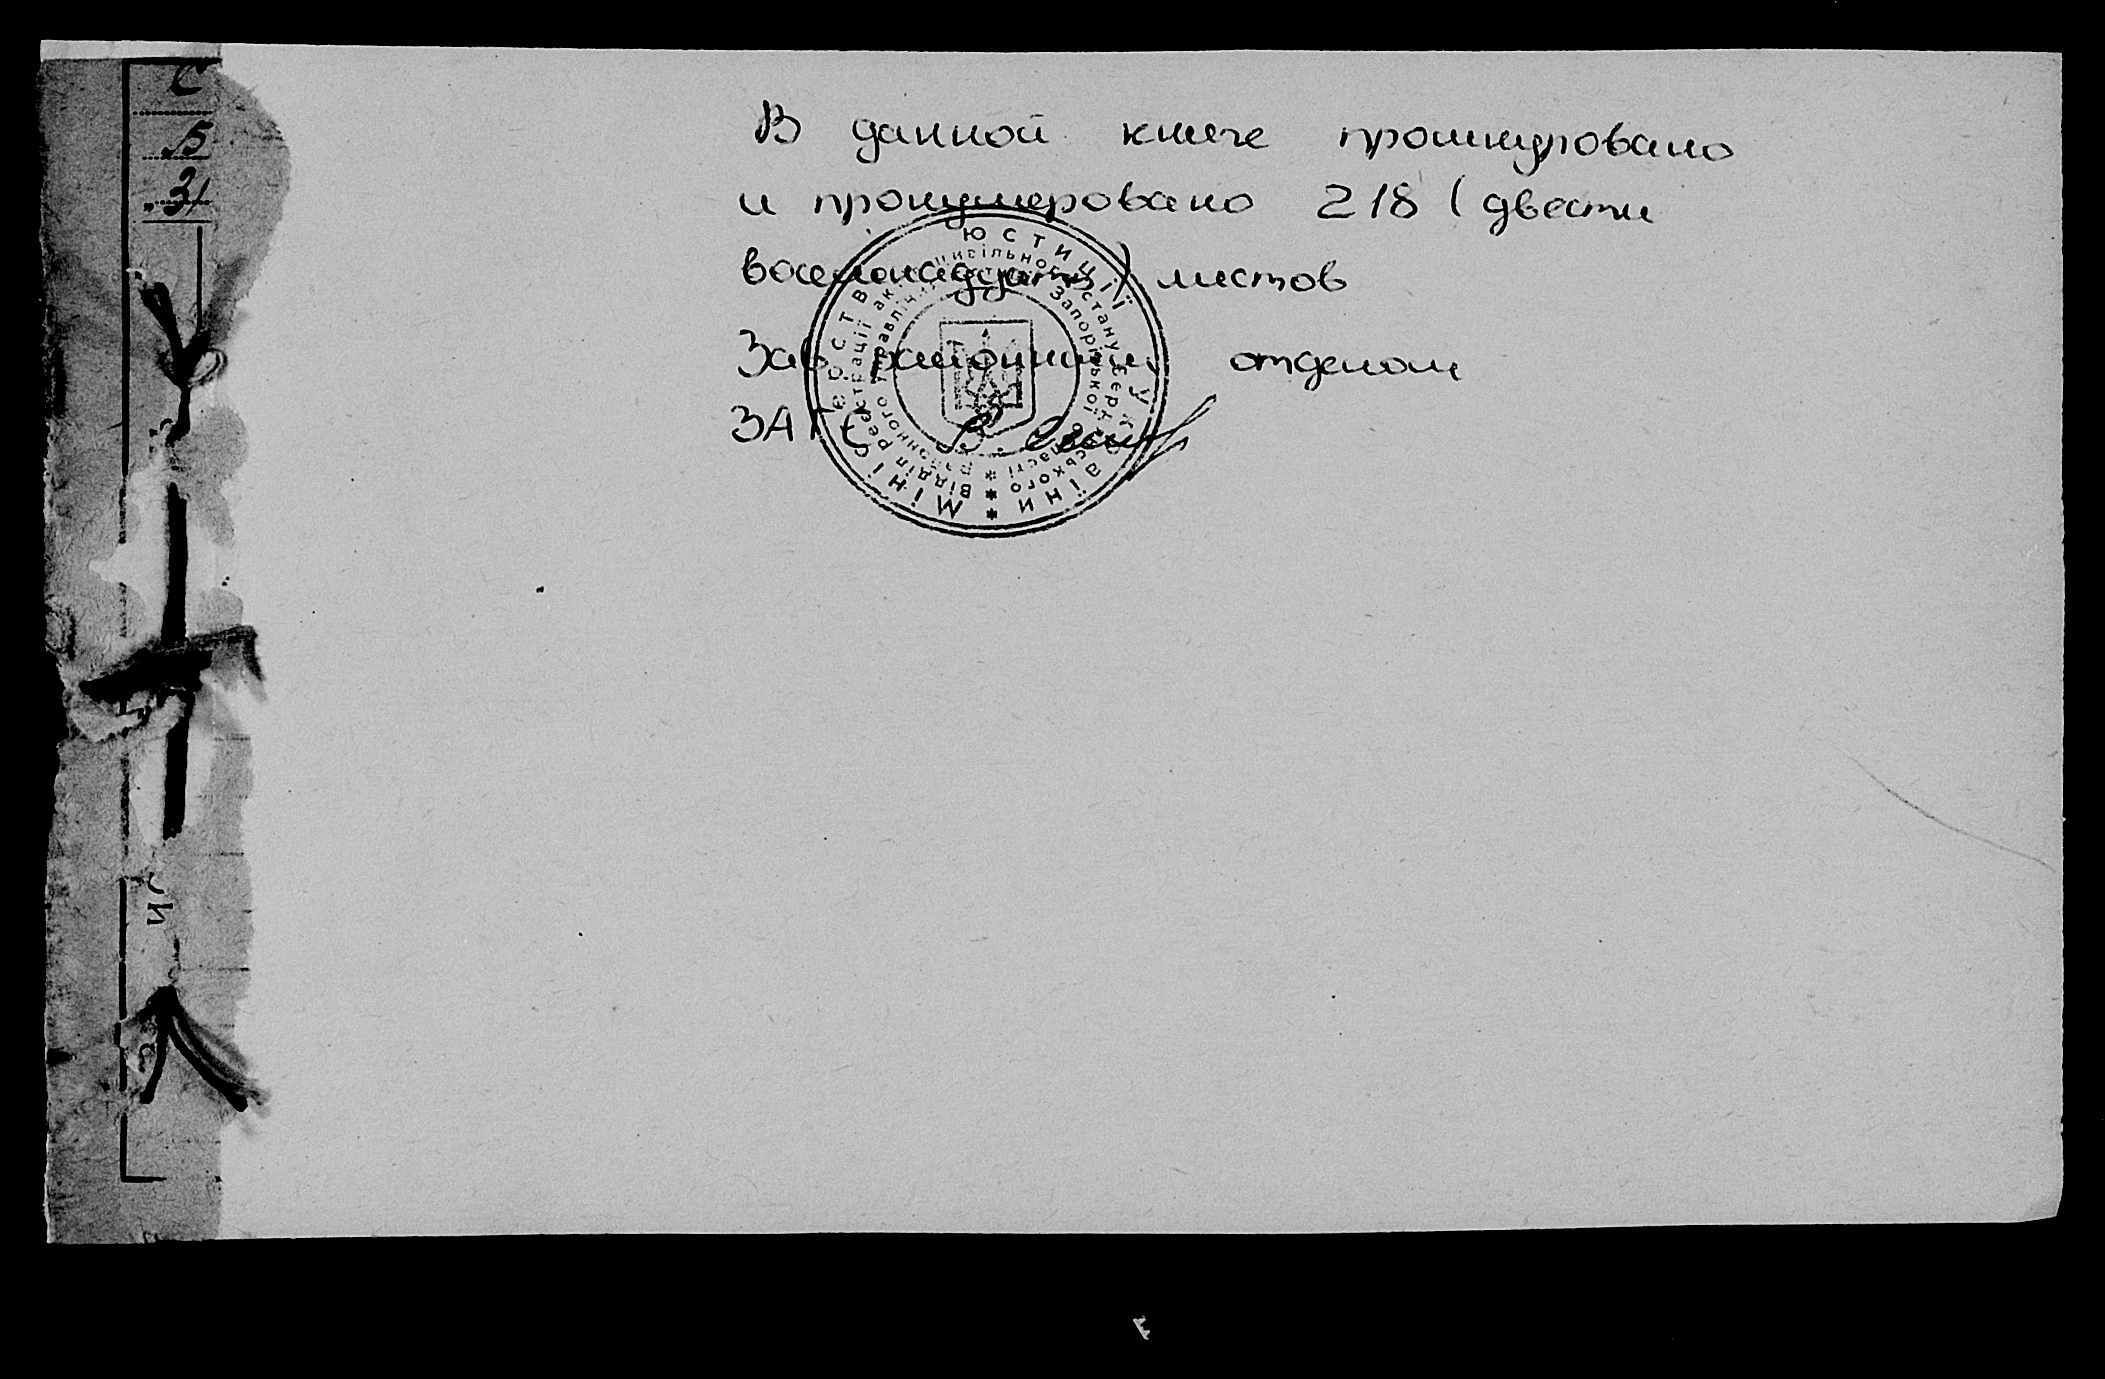 С
5
31
В данной книге прошнуровано
и пронумеровано 218 (двести
восемнадцать) листов
Зав районным отделом
ЗАГС
Міністерство юстиції України
Відділ реєстрації актів цивільного стану
районного управління юстиції Запорізької області